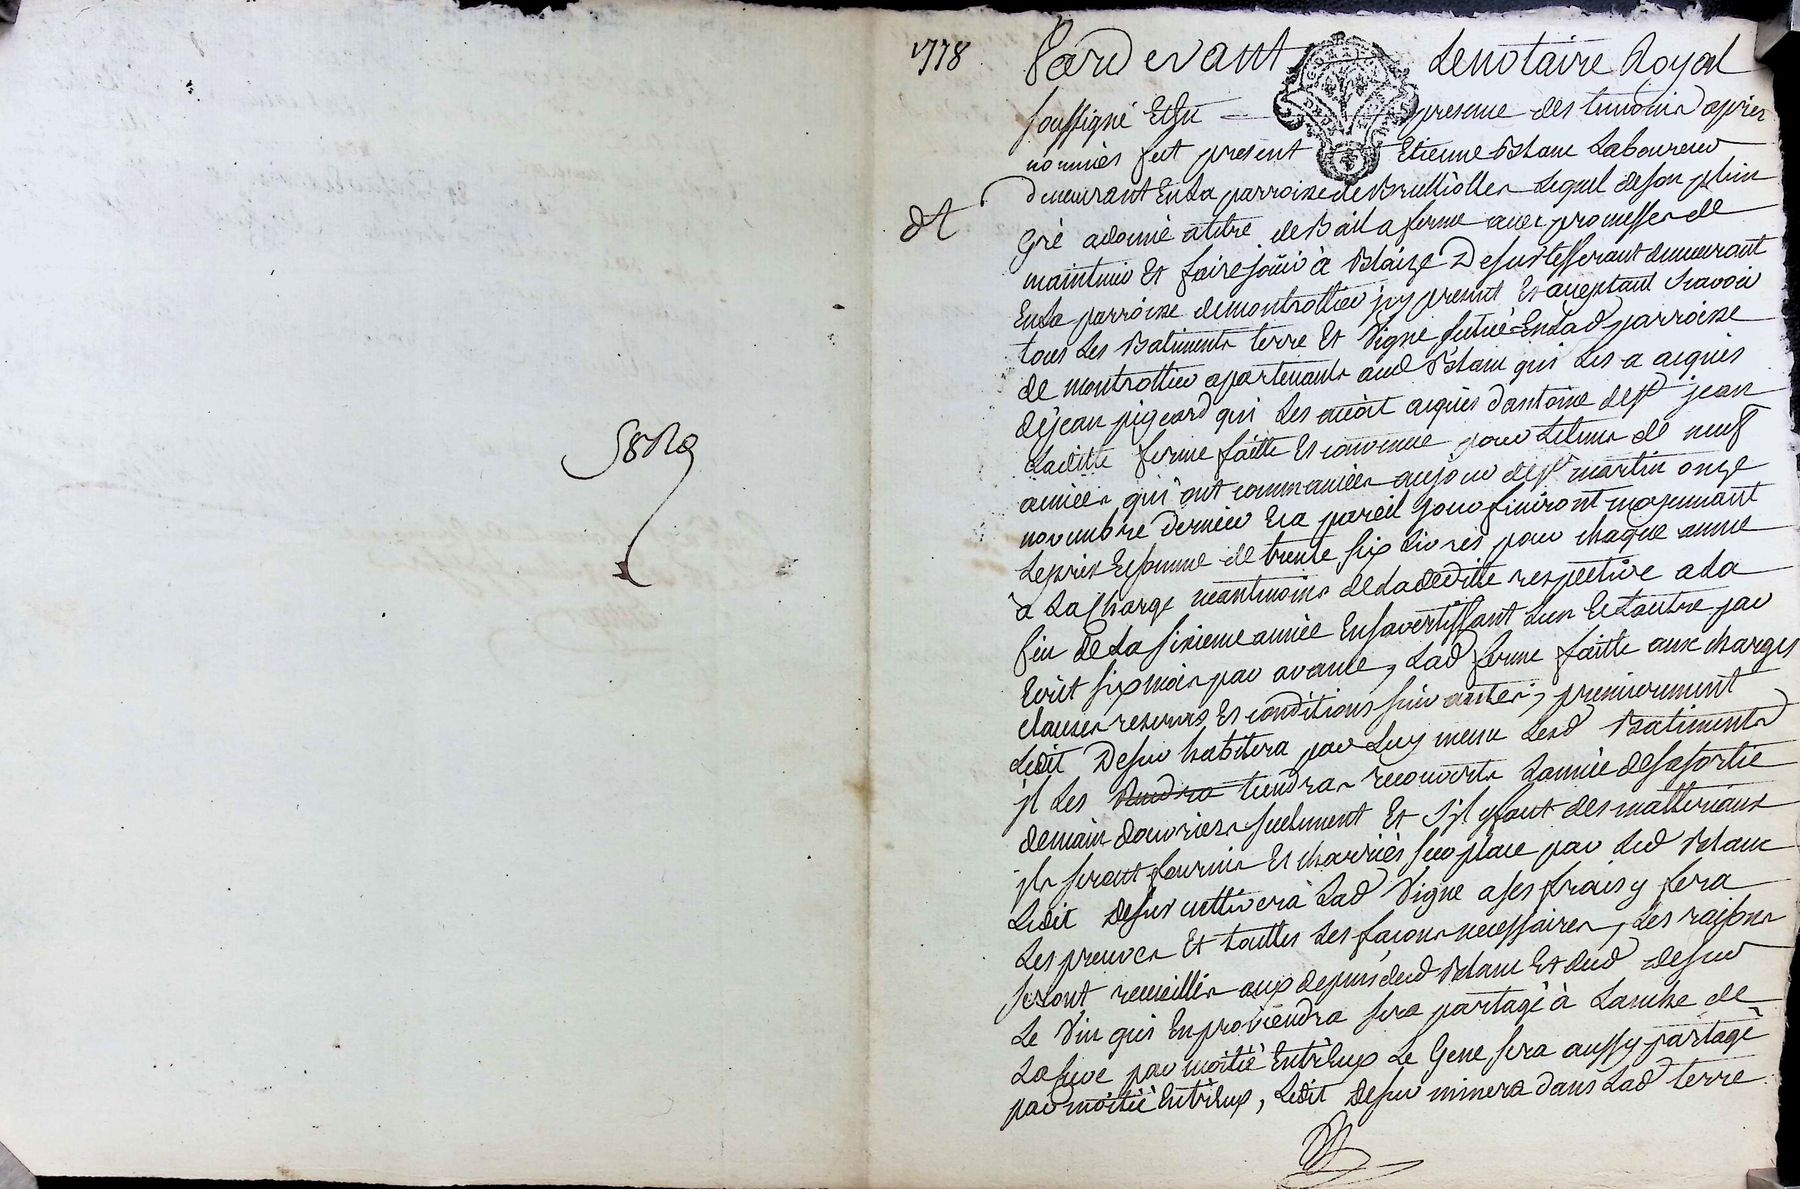 1778
Pardevant Le notaire Royal
soussigné Et En presence des temoins apres
nommés fut present Etienne Blanc Laboureur
demeurant En La parroisse de Brullioles Lequel de son plein
dt
gré a donné a titre de Bail a ferme avec promesse de
maintenir Et faire joüir à Blaize Desu tisserant demeurant
En La parroisse de montrottier jcy present Et aceptant scavoir
tous Les Batiments terre Et Vigne situé En Lad parroisse
de montrottier apartenants aud Blanc qui Les a aequis
de jean pigeard qui Les avoit aequis d'antoine de st jean
Laditte ferme faitte Et convenue pour Le tems de neuf
années qui ont commancées au jour de st martin onze
novembre dernier Et a pareil jour finiront moyennant
Le prix Et somme de trente six Livres pour chaque année
à La Charge neantmoins de La deditte respective a La
fin de La sixieme année En s'avertissant L'un Et L'autre par
Ecrit six mois par avance, Lad ferme faitte aux charges
clauses reserves Et conditions suivantes, premierement
Ledit Desu habitera par Luy meme Lesd Batiments
jl Les Rendra tiendra recouverts L'année de sa sortie
de main d'ouvriers seulement Et s'jl y faut des matteriaux
jls seront fournis Et charriés sur place par Led Blanc
Ledit Desu cultivera Lad Vigne a ses frais y fera
Les preuves Et touttes Les façons necessaires, Les raisins
seront recueillis aux depens dud Blanc Et dud Desu
Le Vin qui En proviendra sera partagé à L'anche de
La cuve par moitié Entr'Eux Le Gene sera aussy partagé
par moitié Entr'Eux, Ledit Desu minera dans Lad terre